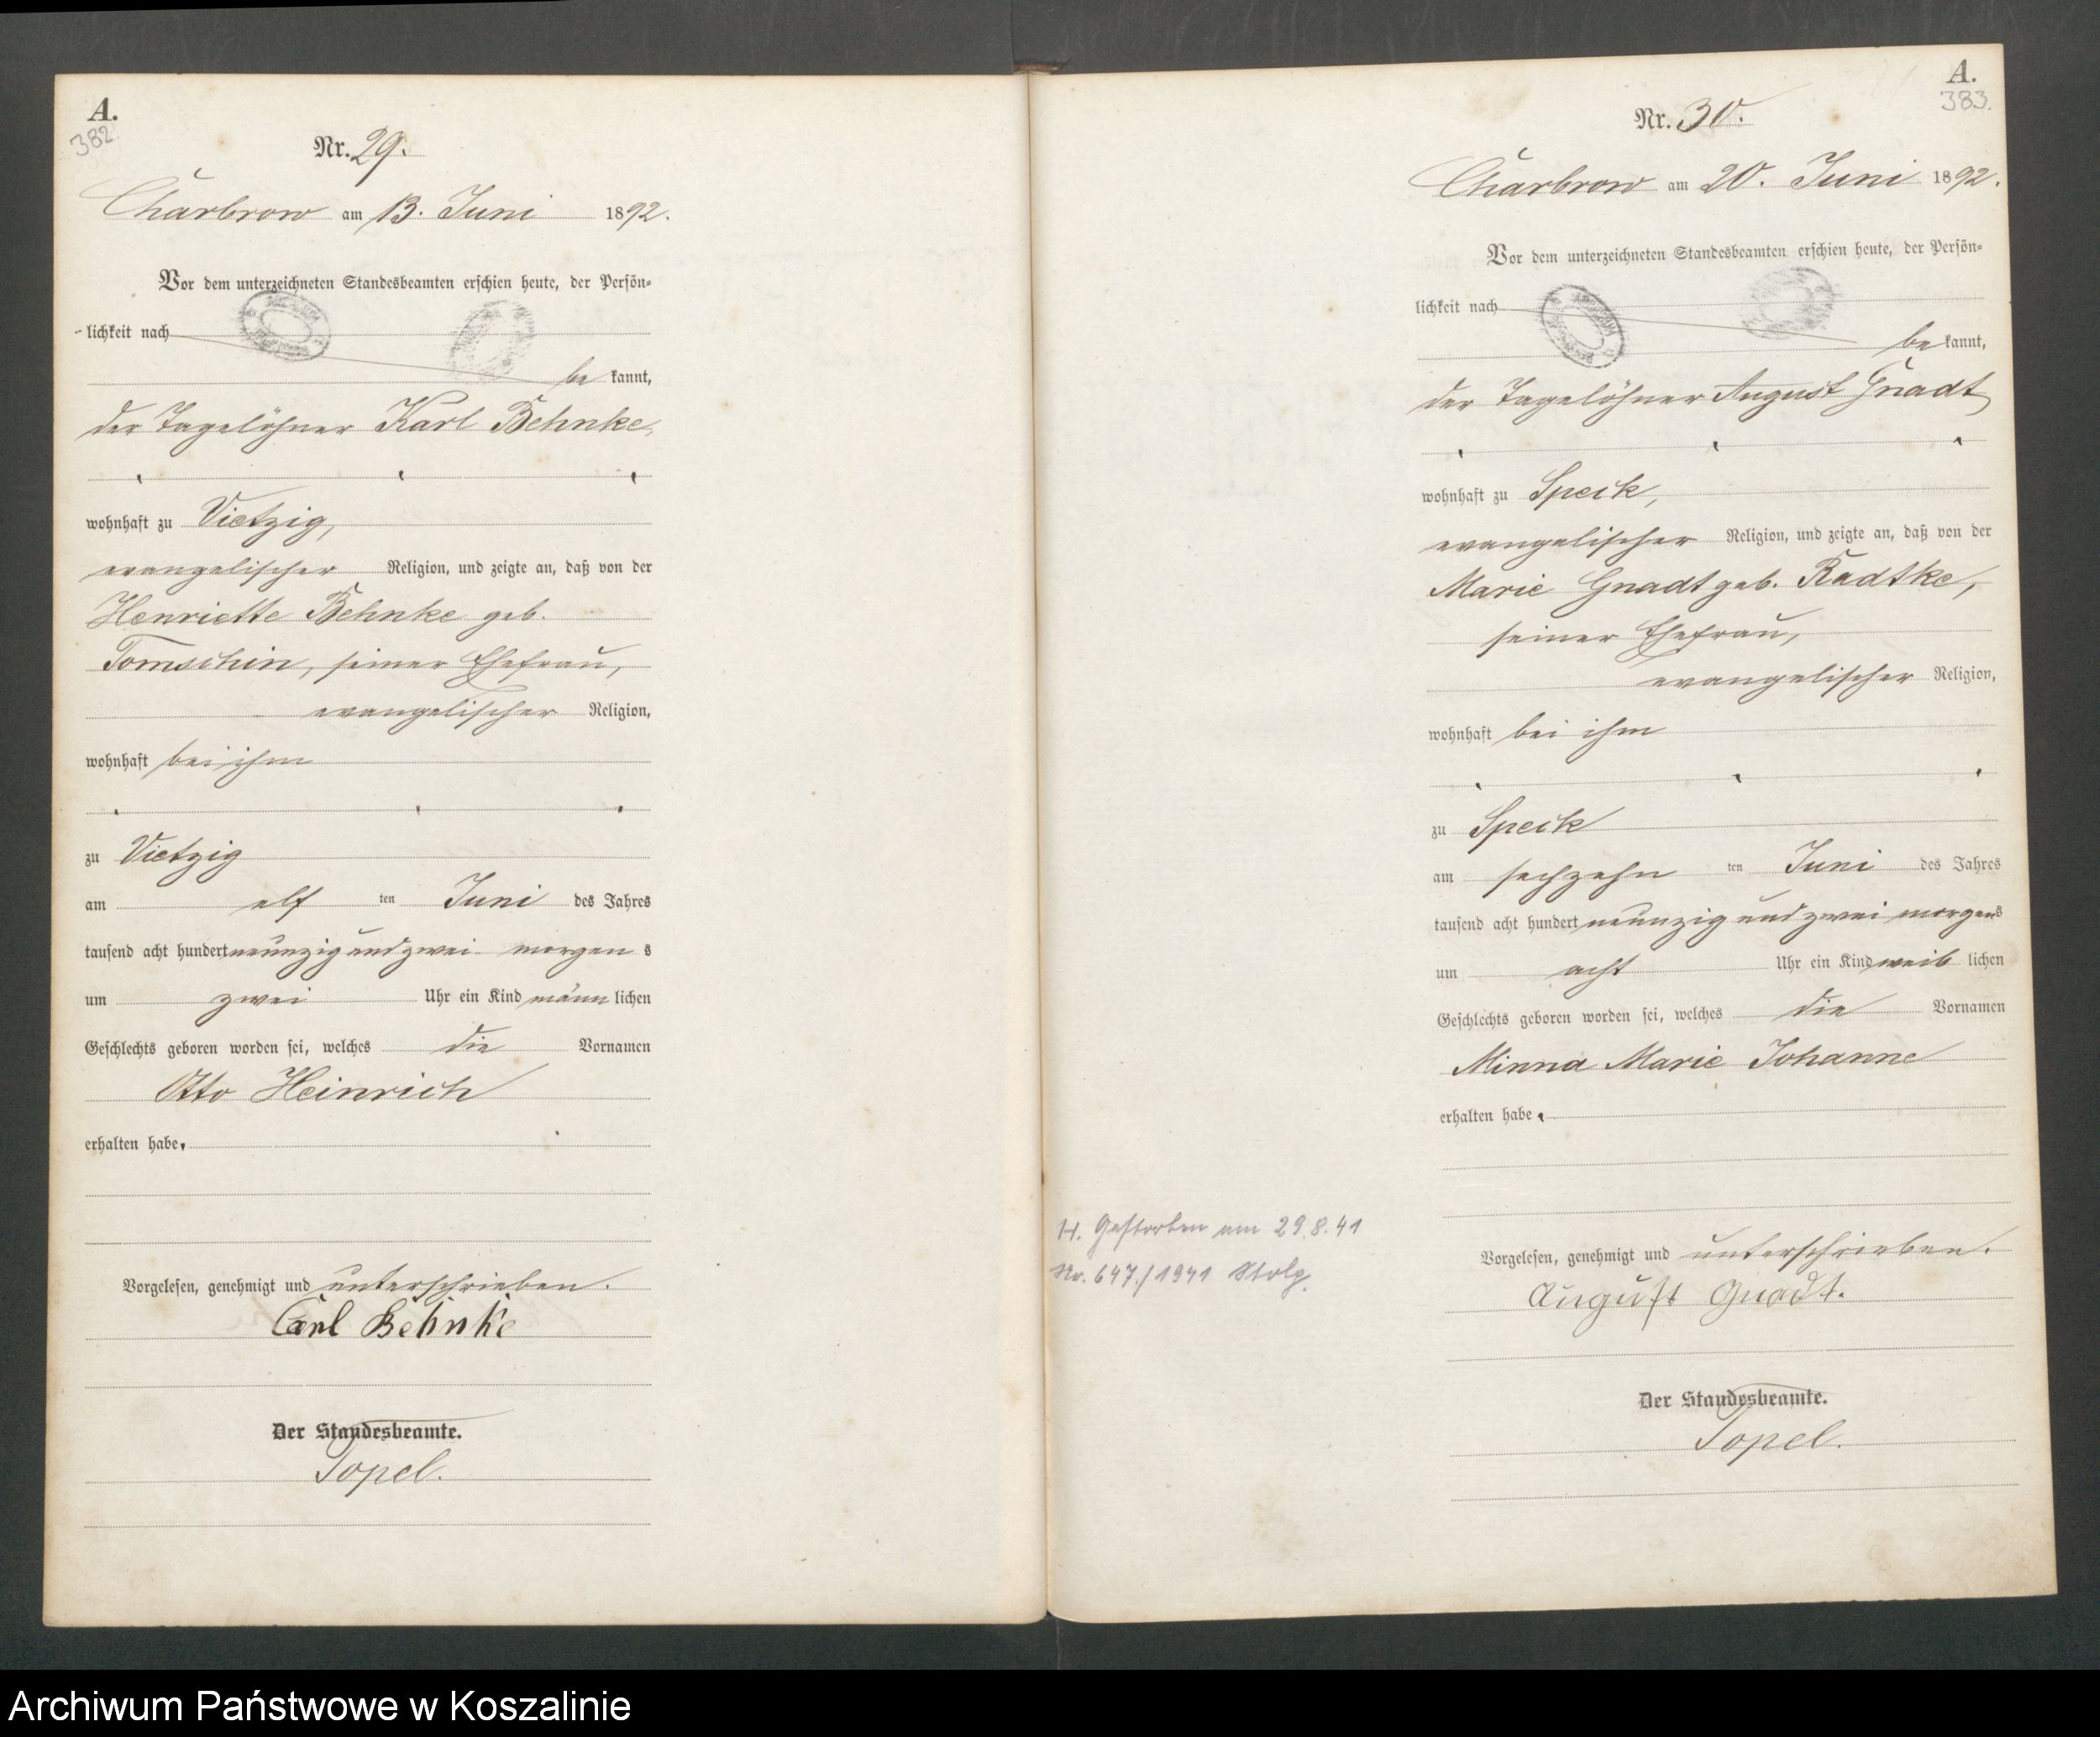 A.
382.
Nr. 29.
Charbrow am 13. Juni 1892.
Vor dem unterzeichneten Standesbeamten erschien heute, der Persön-
lichkeit nach
be kannt,
der Tagelöhner Karl Behnke,
wohnhaft zu Vietzig,
evangelischer Religion, und zeigte an, daß von der
Henriette Behnke geb.
Tomschin, seiner Ehefrau,
evangelischer Religion,
wohnhaft bei ihm
zu Vietzig
am elf ten Juni des Jahres
tausend acht hundert neunzig und zwei morgen s
um zwei Uhr ein Kind männ lichen
Geschlechts geboren worden sei, welches die Vornamen
Otto Heinrich
erhalten habe.
Vorgelesen, genehmigt und unterschrieben.
Carl Behnke
Der Standesbeamte.
Topel.
A.
383.
Nr. 30.
Charbrow am 20. Juni 1892.
Vor dem unterzeichneten Standesbeamten erschien heute, der Persön-
lichkeit nach
be kannt,
der Tagelöhner August Gnadt
wohnhaft zu Speck,
evangelischer Religion, und zeigte an, daß von der
Marie Gnadt geb. Radtke,
seiner Ehefrau,
evangelischer Religion,
wohnhaft bei ihm
zu Speck
am sechzehn ten Juni des Jahres
tausend acht hundert neunzig und zwei morgens
um acht Uhr ein Kind weib lichen
Geschlechts geboren worden sei, welches die Vornamen
Minna Marie Johanne
erhalten habe.
H. Gestorben am 29.8.41
Nr. 647./1941 Stolp.
Vorgelesen, genehmigt und unterschrieben.
August Gnadt.
Der Standesbeamte.
Topel.
Archiwum Państwowe w Koszalinie